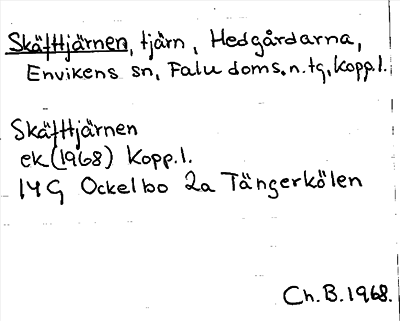 Skäfttjärnen, tjärn, Hedgårdarna,
Envikens sn, Falu doms.n.tg, Kopp.l.
Skäfttjärnen
ek (1968) Kopp.l.
14G Ockelbo 2a Tängerkölen
Ch.B.1968.